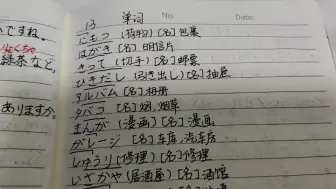 ですね。
りょくちゃ
緑茶など。
ありますか。
13 单词 No. Date:
にもつ (荷物) [名] 包裹
はがき [名] 明信片
きって (切手) [名] 邮票
ひきだし (引き出し) [名] 抽屉
アルバム [名] 相册
タバコ [名] 烟,烟草
まんが (漫画) [名] 漫画
ガレージ [名] 车库,汽车房
しゅうり (修理) [名] 修理
いざかや (居酒屋) [名] 酒馆